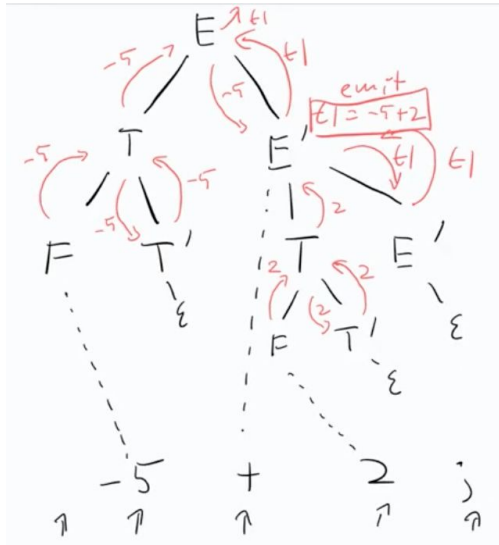 E t1
-5 -5 t1
emit
t1 = -5+2
T E' t1 t1
-5 -5 -5 2
F T' T E'
ε 2 2 2 ε
F T'
ε
-5 + 2 ;